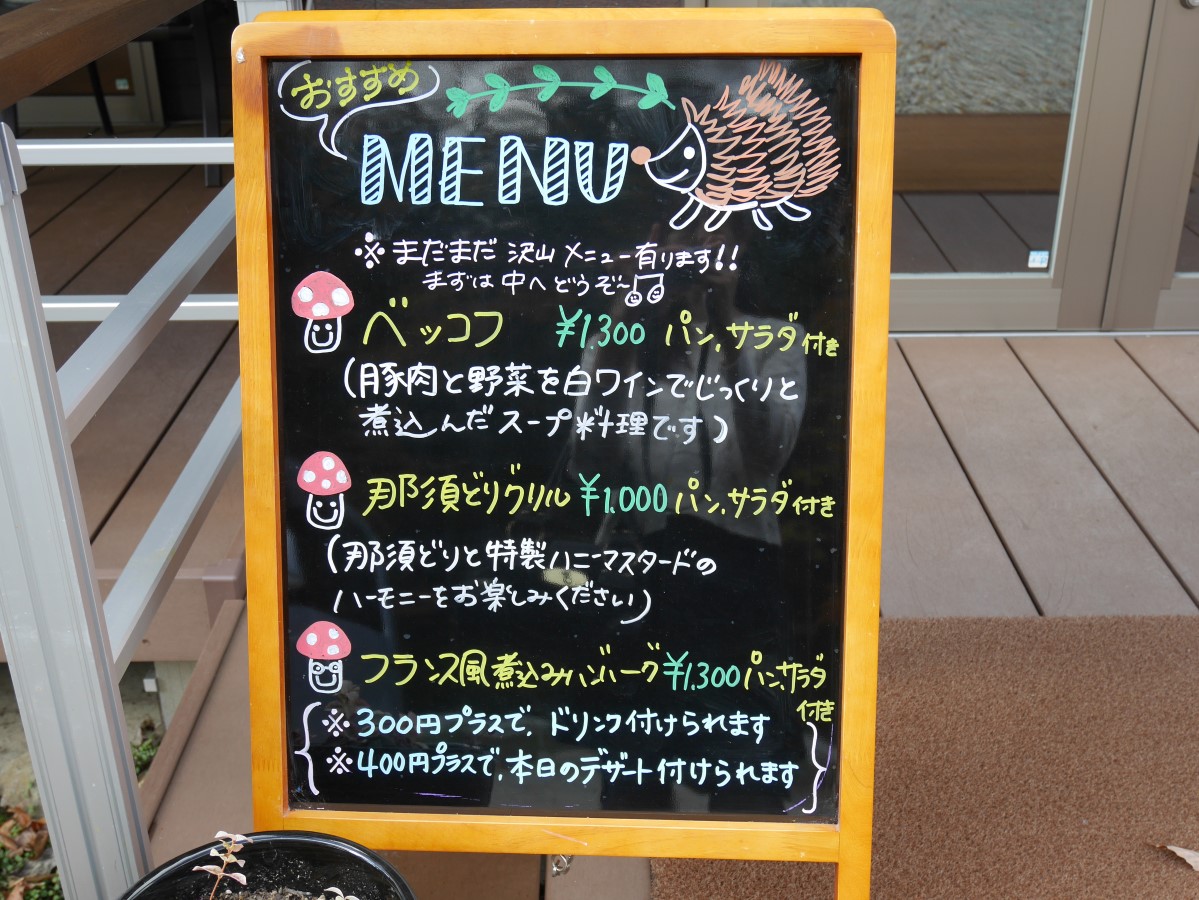 おすすめ
MENU
※ まだまだ 沢山 メニュー有ります!!
まずは 中へ どうぞ〜♫
ベッコフ ¥1.300 パン,サラダ付き
(豚肉と野菜を白ワインでじっくりと
煮込んだスープ料理です)
那須どりグリル ¥1.000 パン,サラダ付き
(那須どりと特製ハニーマスタードの
ハーモニーをお楽しみください)
フランス風煮込みハンバーグ ¥1.300 パン,サラダ
付き
※ 300円プラスで,ドリンク付けられます
※ 400円プラスで,本日のデザート付けられます